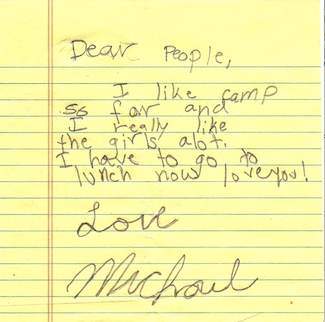 Dear People,
I like camp
so far and
I really like
the girls alot.
I have to go to
lunch now love you!
Love
Michael